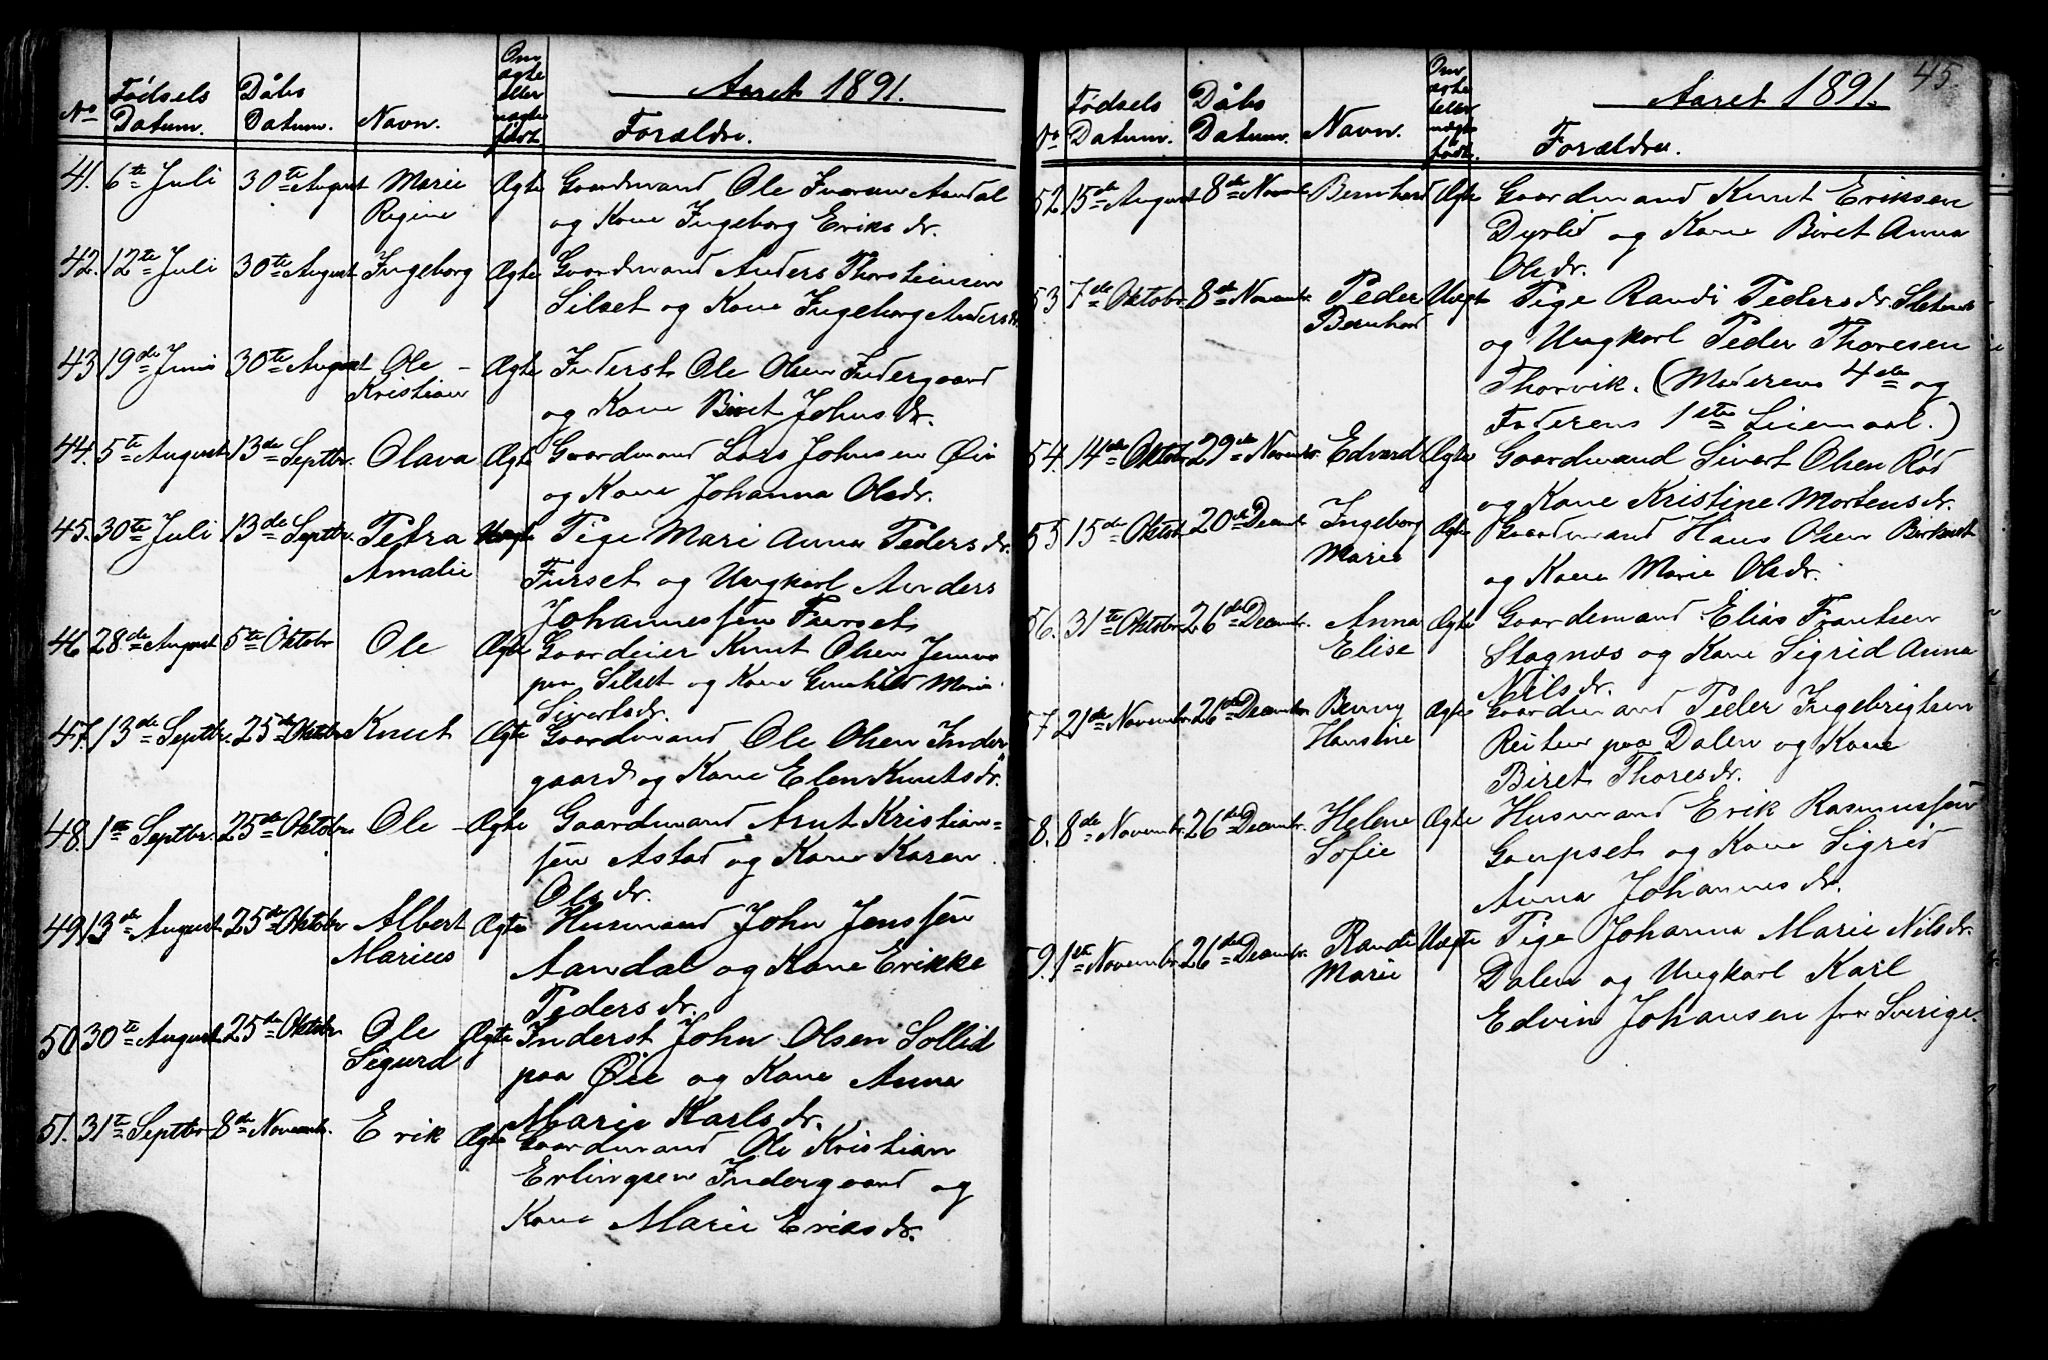 Aaret 1891.
No Fødsels Datum. Dåbs Datum. Navn. Om ægte eller uægte født. Forældre.
41. 6te Juli 30te August Marie Ægte Gaardmand Ole Iversen Aandal
Regine og Kone Ingeborg Eriksdr.
42. 12te Juli 30te August Ingeborg Ægte Gaardmand Anders Thorsteinsen
Silset og Kone Ingeborg Andersdr.
43 19de Juni 30te August Ole Ægte Inderst Ole Olsen Indergaard
Kristian og Kone Biret Johnsdr.
44. 5te August 13de Septbr. Olava Ægte Gaardmand Lars Johnsen Øie
og Kone Johanna Olsdr.
45. 30te Juli 13de Septbr. Petra Uægte Pige Mari Anna Pedersdr.
Amalie Furset og Ungkarl Anders
Johannessen Furset
46 28de August 5te Oktobr Ole Ægte Gaardeier Knut Olsen
paa Silset og Kone Gunhild Marie
Sivertsdr.
47. 13de Septbr. 25de Oktobr Knut Ægte Gaardmand Ole Olsen Inder
gaard og Kone Elen Knutsdr.
48. 1te Septbr. 25de Oktobr Ole - Ægte Gaardmand Knut Kristian=
sen Astad og Kone Karen
Olsdr.
49 13de August 25de Oktobr Albert Ægte Husmand John Jenssen
Marius Aandal og Kone Erikke
Pedersdr.
50 30te August 25de Oktobr. Ole Ægte Inderst John Olsen Sollid
Sigurd paa Øie og Kone Anna
Marie Karlsdr.
51. 31te Septbr 8de Novembr. Erik Ægte Gaardmand Ole Kristian
Erlingsen Indergaard og
Kone Marie Eriksdr.
45.
Aaret 1891.
No Fødsels Datum. Dåbs Datum. Navn. Om ægte eller uægte født. Forældre.
52. 15de August 8de Novembr Bernhard Ægte Gaardmand Knut Eriksen
Dyrlid og Kone Biret Anna
Olsdr.
53 7de Oktobr. 8de Novembr. Peder Uægte Pige Randi Pedersdr.
Bernhard og Ungkarl Peder Thoresen
Thorvik. (Moderens 4de og
Faderens 1ste Leiermaal.)
54. 14de Oktobr 29de Novembr. Edvard Ægte Gaardmand Sivert Olsen Rød
og Kone Kristine Mortensdr.
55 15de Oktobr. 20de Decembr Ingeborg Ægte Gaardmand Hans Olsen
Marie og Kone Marie Olsdr.
56. 31te Oktobr. 26de Decembr. Anna Ægte Gaardemand Elias Frantsen
Elise Stognæs og Kone Sigrid Anna
Nilsdr.
57. 21de Novembr. 26de Decembr. Benny Ægte Gaardmand Peder Ingebrigtsen
Hansine Reiten paa Dalen og Kone
Biret Thoresdr.
58. 8de Novembr. 26de Decembr. Helene Ægte Husmand Erik Rasmussen
Sofie Gaupset og Kone Sigrid
Anna Johannesdr.
59. 1ste Novembr. 26de Decembr. Randi Uægte Pige Johanna Marie Nilsdr.
Marie Dalen og Ungkarl Karl
Edvin Johansen fra Sverige.